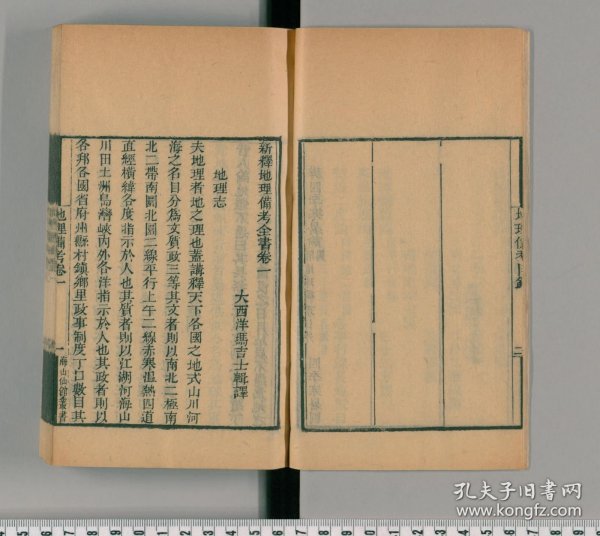 地理備考目錄
二
新釋地理備考全書卷一
大西洋瑪吉士輯譯
地理志
夫地理者地之理也蓋講釋天下各國之地式山川河
海之名目分為文質政三等其文者則以南北二極南
北二帶南圜北圜二線平行上午二線赤寒溫熱四道
直經橫緯各度指示於人也其質者則以江湖河海山
川田土洲島灣峽內外各洋指示於人也其政者則以
各邦各國省府州縣村鎮鄉里政事制度丁口數目其
地理備考卷一
一
海山仙館叢書
孔夫子旧书网
www.kongfz.com